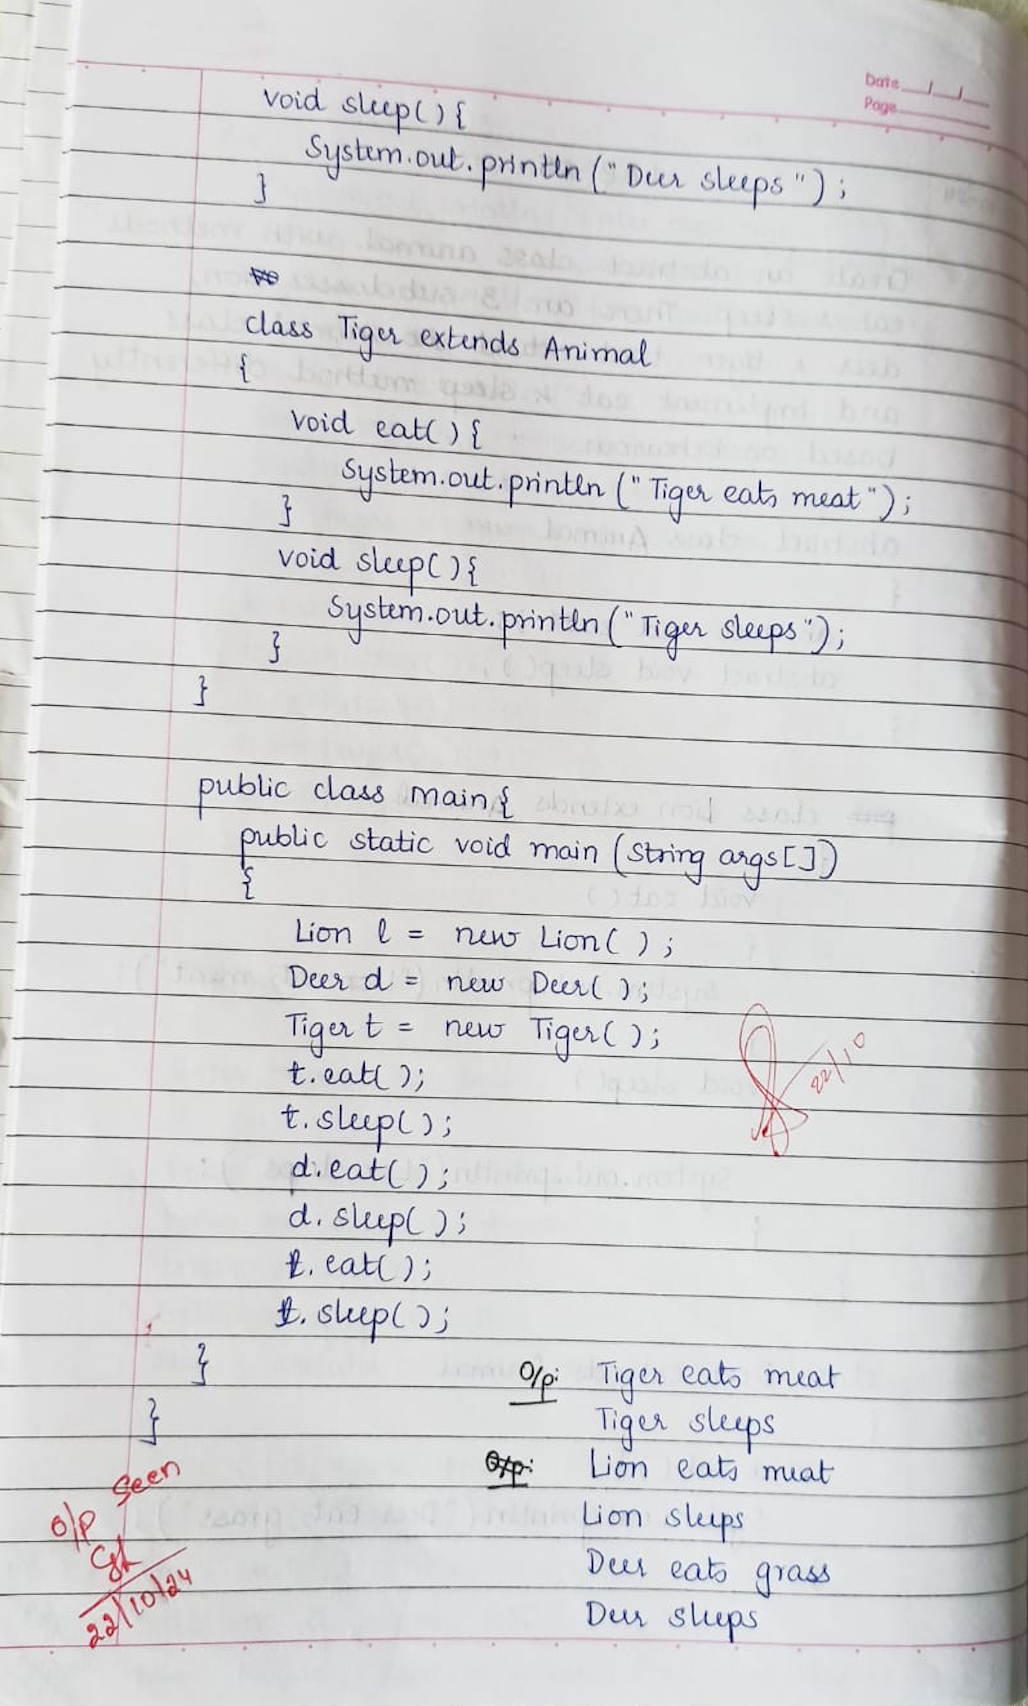 Date
Page
void sleep( ) {
System.out.println ("Deer sleeps") ;
}
class Tiger extends Animal
{
void eat( ) {
System.out.println ("Tiger eats meat") ;
}
void sleep( ) {
System.out.println ("Tiger sleeps");
}
}
public class Main{
public static void main (String args[])
{
Lion l = new Lion( ) ;
Deer d = new Deer( );
Tiger t = new Tiger( );
t.eat( );
t.sleep( );
d.eat( );
d.sleep( );
l.eat( );
l.sleep( );
}
}
O/p: Tiger eats meat
Tiger sleeps
Lion eats meat
Lion sleeps
Deer eats grass
Deer sleeps
22/10
O/P Seen
22/10/24